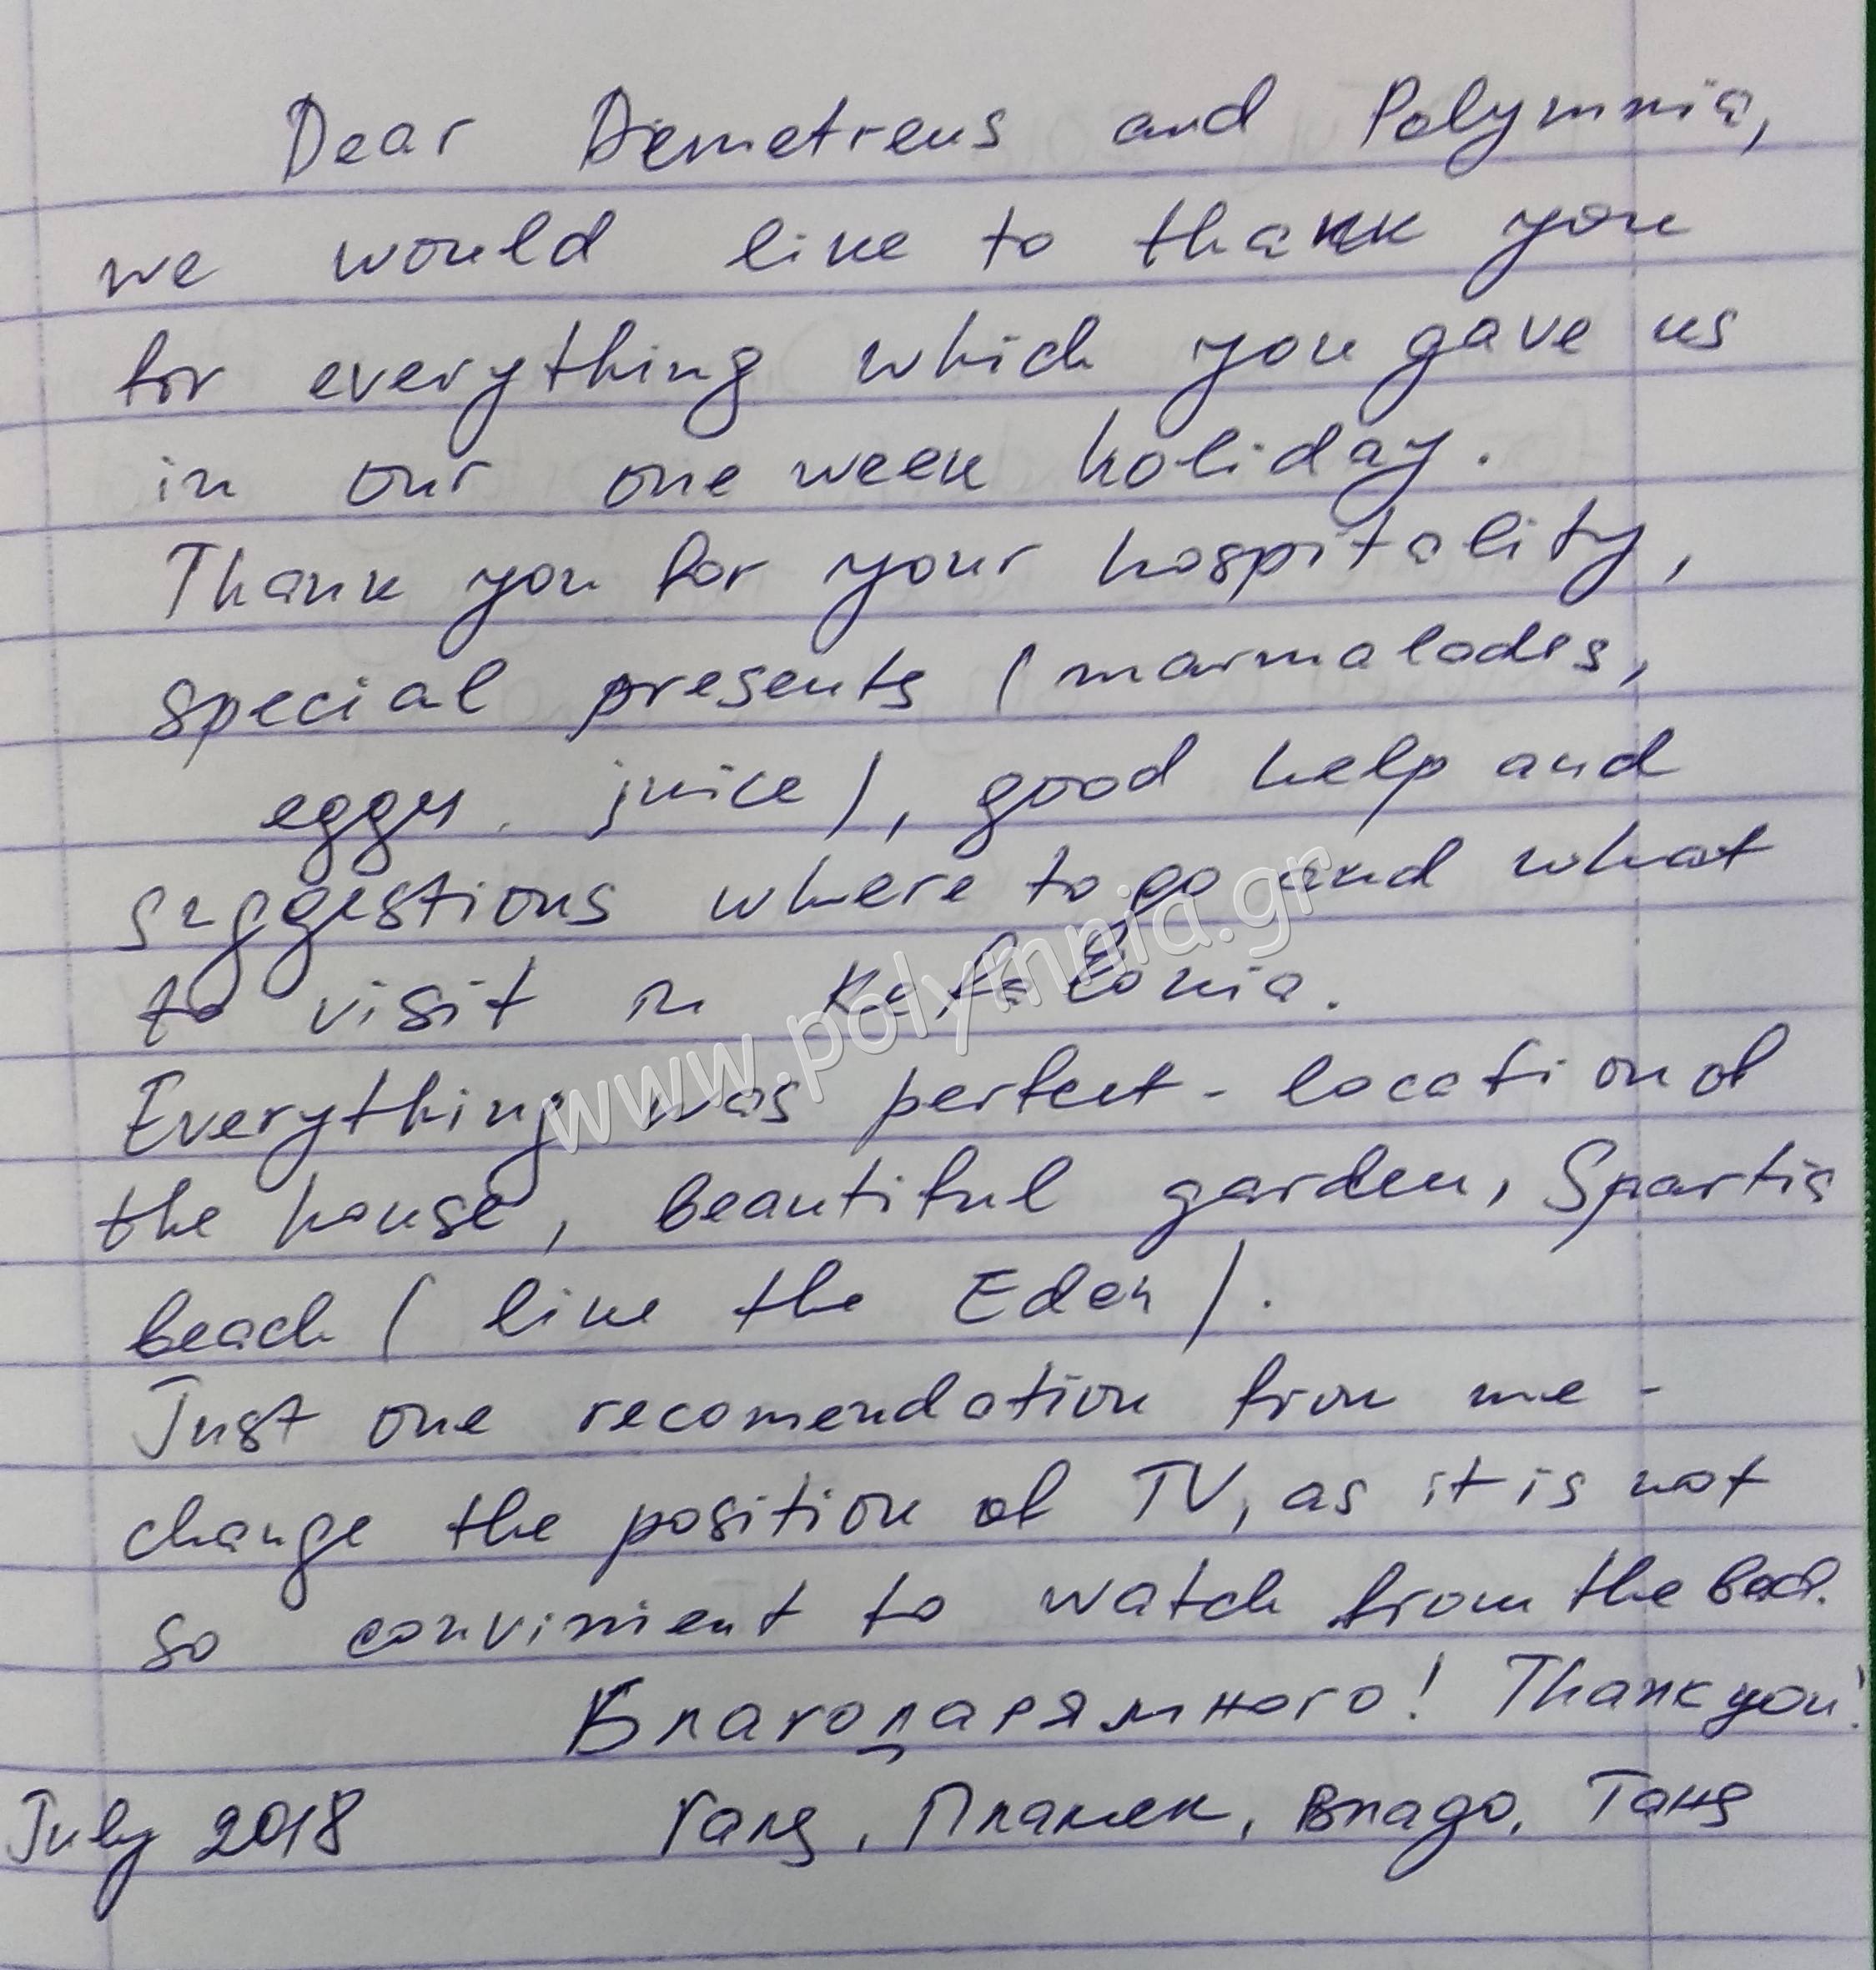 Dear Demetreus and Polymnia,
we would like to thank you
for everything which you gave us
in our one week holiday.
Thank you for your hospitality,
special presents (marmalades,
eggs, juice), good help and
suggestions where to go and what
to visit in Kefalonia.
www.polymnia.gr
Everything was perfect - location of
the house, beautiful garden, Spartia
beach (like the Eden).
Just one recomendation from me -
change the position of TV, as it is not
so convinient to watch from the bed.
Благодаря много! Thank you!
July 2018 Галя, Пламен, Владо, Таня